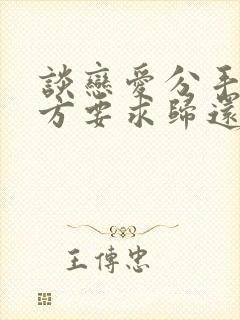 談戀愛分手
方要求歸還
王傳忠